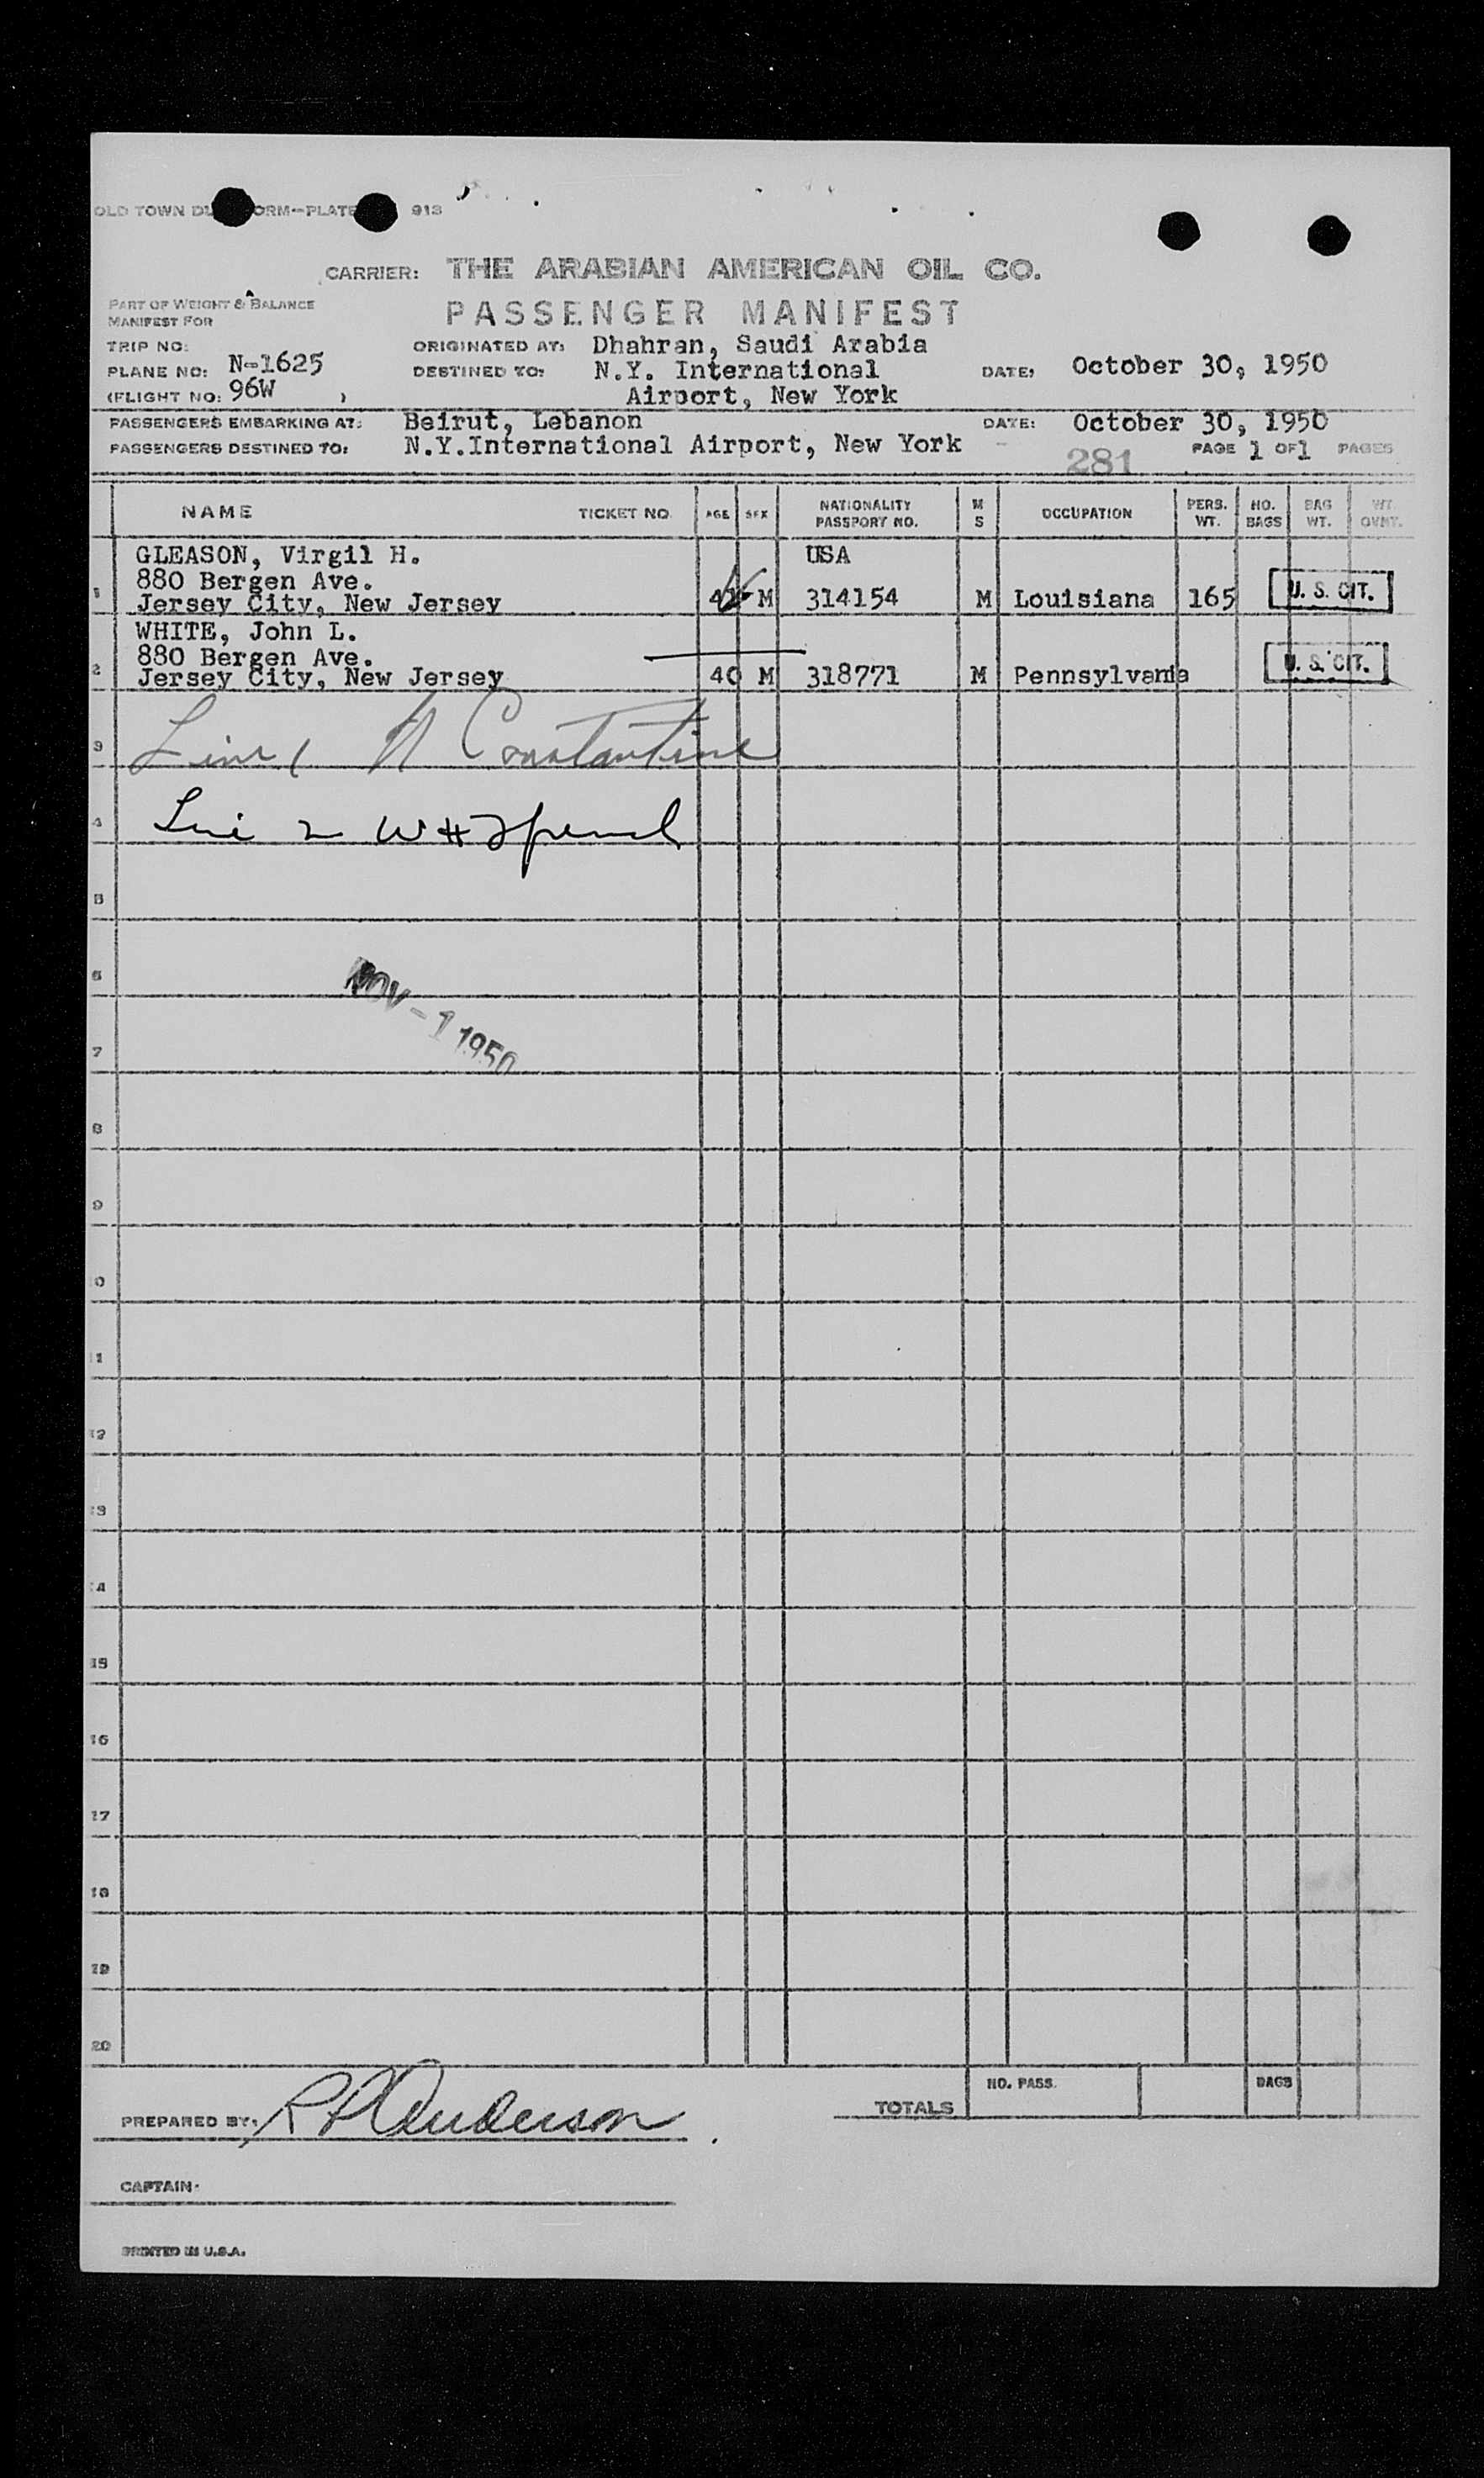 OLD TOWN DU ORM—PLATE 913
CARRIER: THE ARABIAN AMERICAN OIL CO.
PART OF WEIGHT & BALANCE
MANIFEST FOR
PASSENGER MANIFEST
TRIP NO:
ORIGINATED AT: Dhahran, Saudi Arabia
PLANE NO: N-1625
DESTINED TO: N.Y. International
Airport, New York
DATE: October 30, 1950
(FLIGHT NO: 96W )
PASSENGERS EMBARKING AT: Beirut, Lebanon DATE: October 30, 1950
PASSENGERS DESTINED TO: N.Y.International Airport, New York
281 PAGE 1 OF 1 PAGES
NAME TICKET NO. AGE SEX NATIONALITY PASSPORT NO. M S OCCUPATION PERS. WT. NO. BAGS BAG WT. WT. OVWT.
GLEASON, Virgil H. USA
880 Bergen Ave.
1 Jersey City, New Jersey M 314154 M Louisiana 165 U. S. CIT.
WHITE, John L.
880 Bergen Ave.
2 Jersey City, New Jersey 40 M 318771 M Pennsylvania U. S. CIT.
3 Line 1 N Constantine
4 2 W H
5
6
NOV - 1 1950
7
8
9
10
11
12
13
14
15
16
17
18
19
20
NO. PASS. BAGS
TOTALS
PREPARED BY: R A Anderson
CAPTAIN:
PRINTED IN U.S.A.